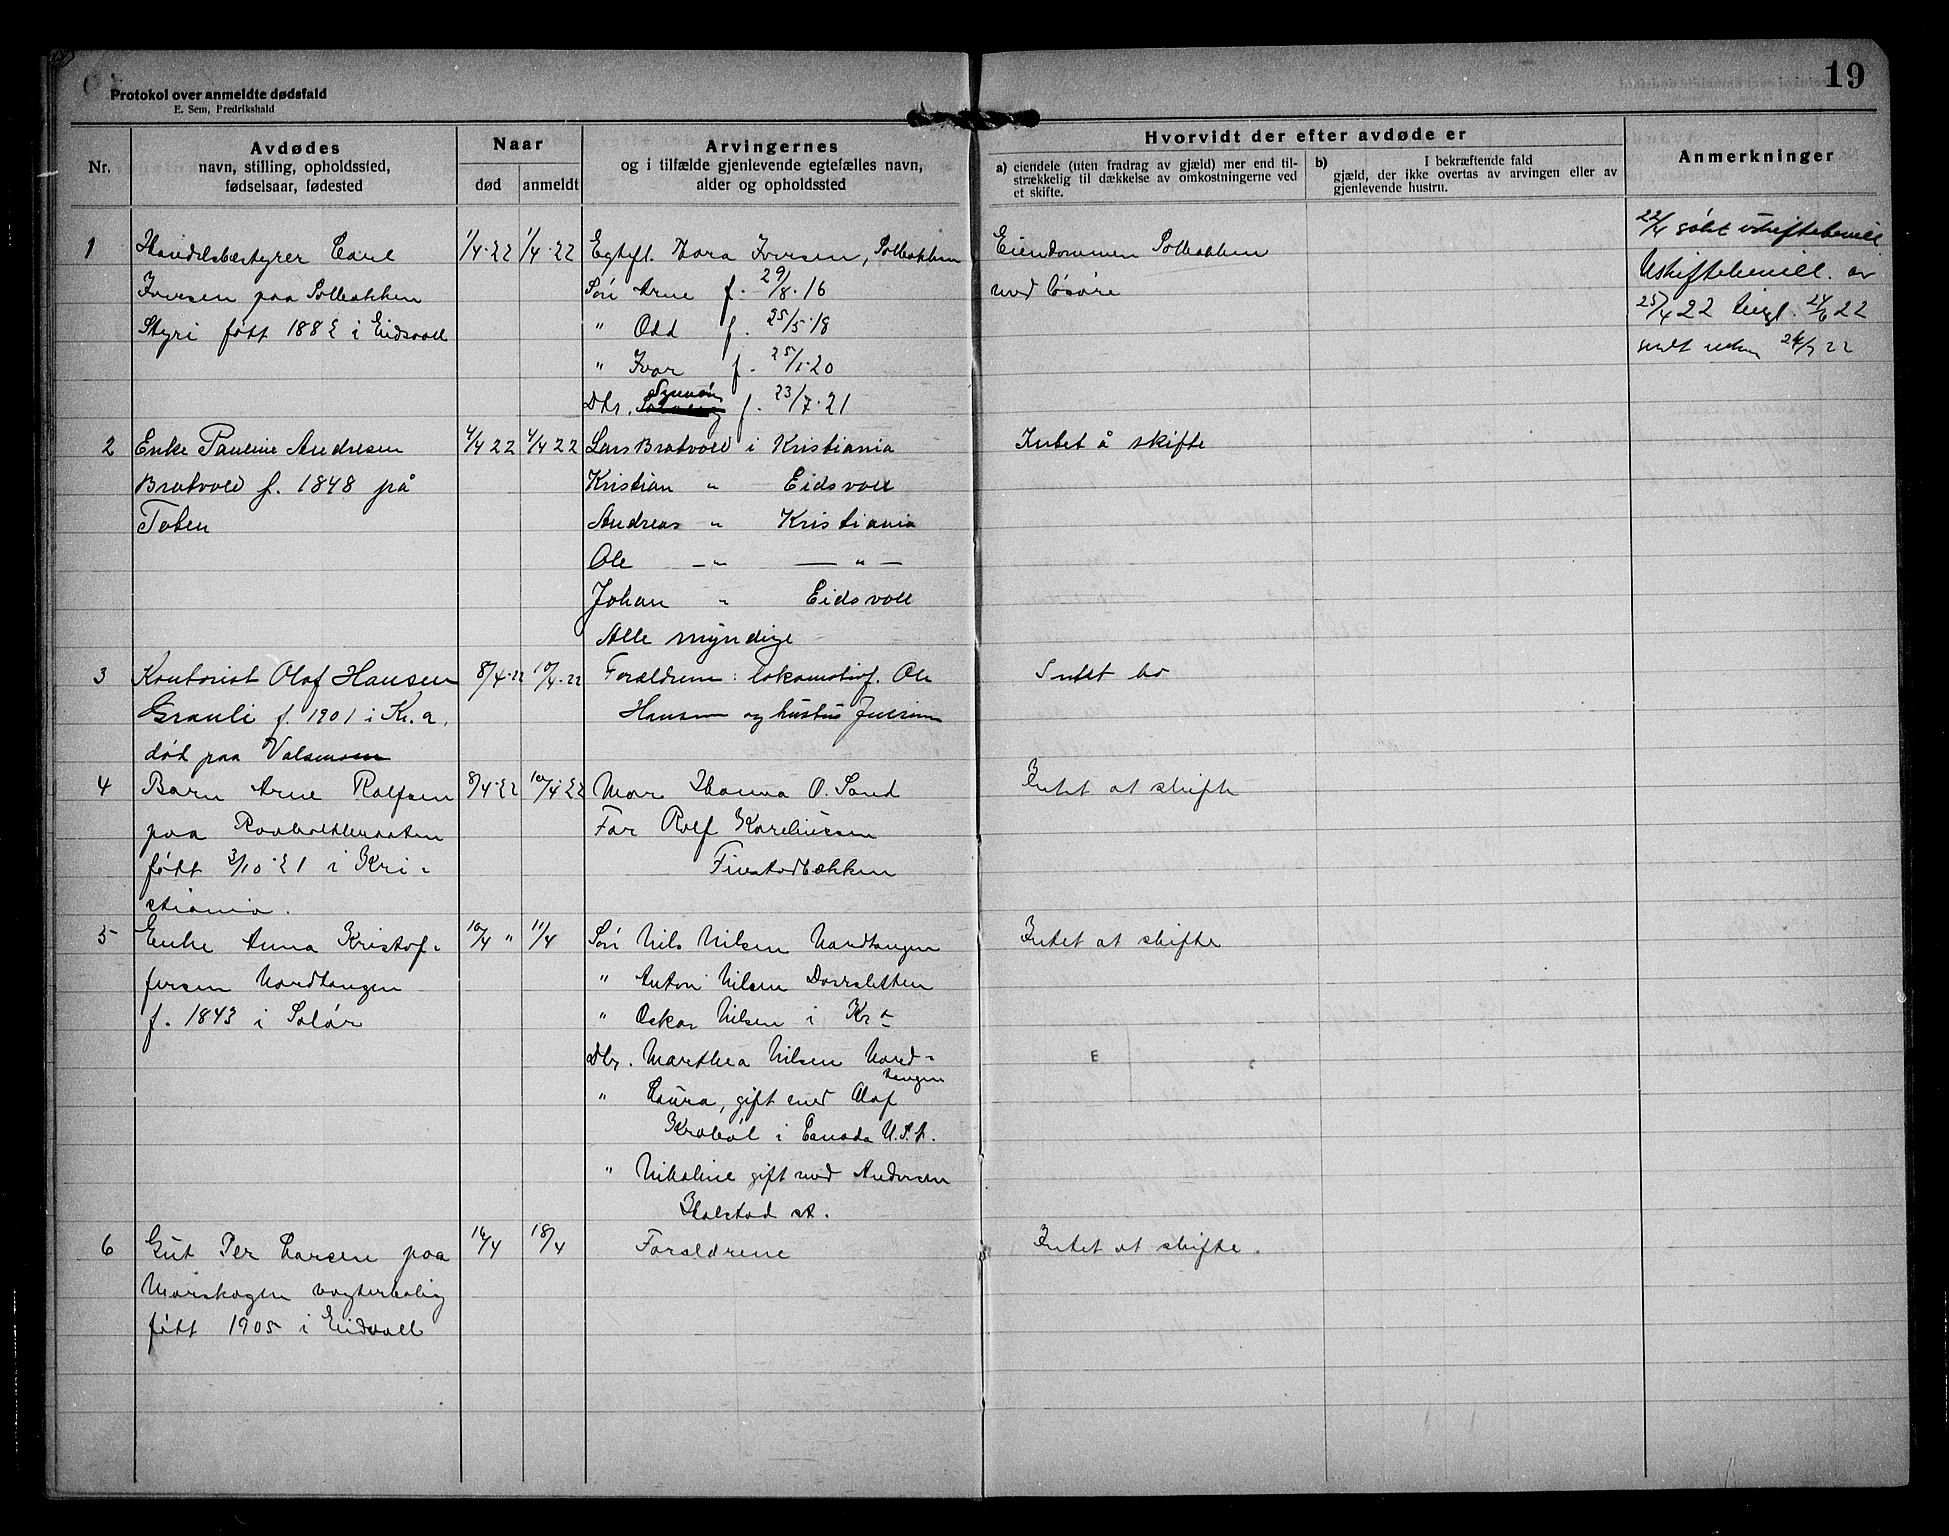 19
Protokol over anmeldte dødsfald
E. Sem, Fredrikshald
Nr.
Avdødes
navn, stilling, opholdssted,
fødselsaar, fødested
Naar
død
anmeldt
Arvingernes
og i tilfælde gjenlevende egtefælles navn,
alder og opholdssted
Hvorvidt der efter avdøde er
a) eiendele (uten fradrag av gjæld) mer end til-
strækkelig til dækkelse av omkostningerne ved
et skifte.
b) I bekræftende fald
gjæld, der ikke overtas av arvingen eller av
gjenlevende hustru.
Anmerkninger
1
Handelsbestyrer Carl
Iversen paa Solbakken
Styri født 1882 i Eidsvoll
1/4·22
1/4·22
Egtef. Thora Iversen, Solbakken
Søn Arne f. 29/8·16
" Odd f. 25/5·18
" Ivar f. 25/1·20
Dtr. Synnøv f. 23/7·21
Eiendommen Solbakken
med løsøre
22/4 søkt uskiftebevill
Uskiftebevill. av
25/4 22 tingl. 24/6 22
sendt
2
Enke Pauline Andresen
Bratvold f. 1848 på
Toten
4/4 22
4/4 22
Lars Bratvold i Kristiania
Kristian " Eidsvoll
Andreas " Kristiania
Ole — " — " —
Johan " Eidsvoll
Alle myndige
Intet å skifte
3
Kontorist Olaf Hansen
Grauli f. 1901 i Kr.a.
død paa
8/4·22
10/4·22
Forældrene: lokomotivf. Ole
Hansen og hustru
Intet bo
4
Barn Arne Rolfsen
paa
født 3/10·21 i Kri-
stiania.
8/4·22
10/4·22
Mor Hanna O. Sand
Far Rolf Kareliussen
Finstadbækken
Intet at skifte
5
Enke Anna Kristof-
fersen Nordtangen
f. 1843 i Solør
10/4 "
11/4
Søn Nils Nilsen Nordtangen
" Anton Nilsen
" Oskar Nilsen i Kr.a
Dtr. Marthea Nilsen Nord-
tangen
" Laura, gift med Olaf
Krabøl i Canada U.S.A.
" Nikoline gift med Andersen
Bolstad st.
Intet at skifte
6
Gut Per Larsen paa
Morskogen vogterbolig
født 1905 i Eidsvoll
16/4
18/4
Forældrene
Intet at skifte.